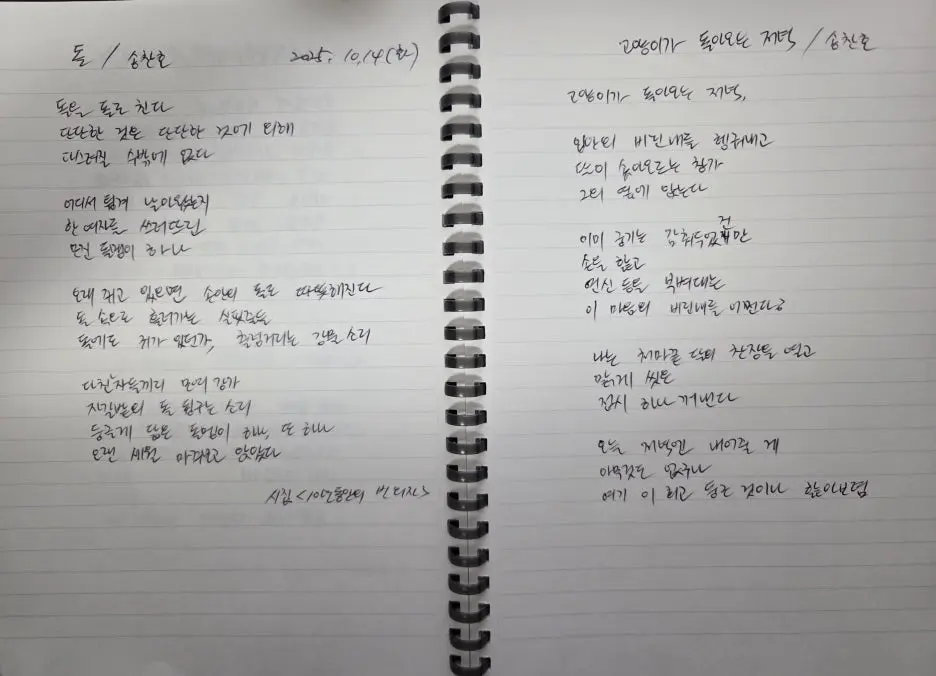 돌 / 송찬호
2025. 10. 14 (화)
돌을 돌로 친다
단단한 것은 단단한 것에 의해
다스려질 수밖에 없다
어디서 튕겨 날아왔는지
한 여자를 쓰러뜨린
모진 돌멩이 하나
오래 쥐고 있으면 손안의 돌도 따뜻해진다
돌 속으로 흘러가는 실핏줄들
돌에도 귀가 있던가, 출렁거리는 강물 소리
다친 자들끼리 모여 강가
자갈밭의 돌 튕구는 소리
둥글게 닳은 돌멩이 하나, 또 하나
오랜 세월 아파오고 앉았다
시집 <10년 동안의 빈 의자>
고양이가 돌아오는 저녁 / 송찬호
고양이가 돌아오는 저녁,
입안의 비린내를 헹궈내고
달이 솟아오르는 창가
그의 옆에 앉는다
이미 궁기는 감춰두었건만
손을 핥고
연신 등을 부벼대는
이 마음의 비린내를 어쩐다?
나는 처마끝 달의 찬장을 열고
맑게 씻은
접시 하나 꺼낸다
오늘 저녁엔 내어줄 게
아무것도 없구나
여기 이 희고 둥근 것이나 핥아보렴